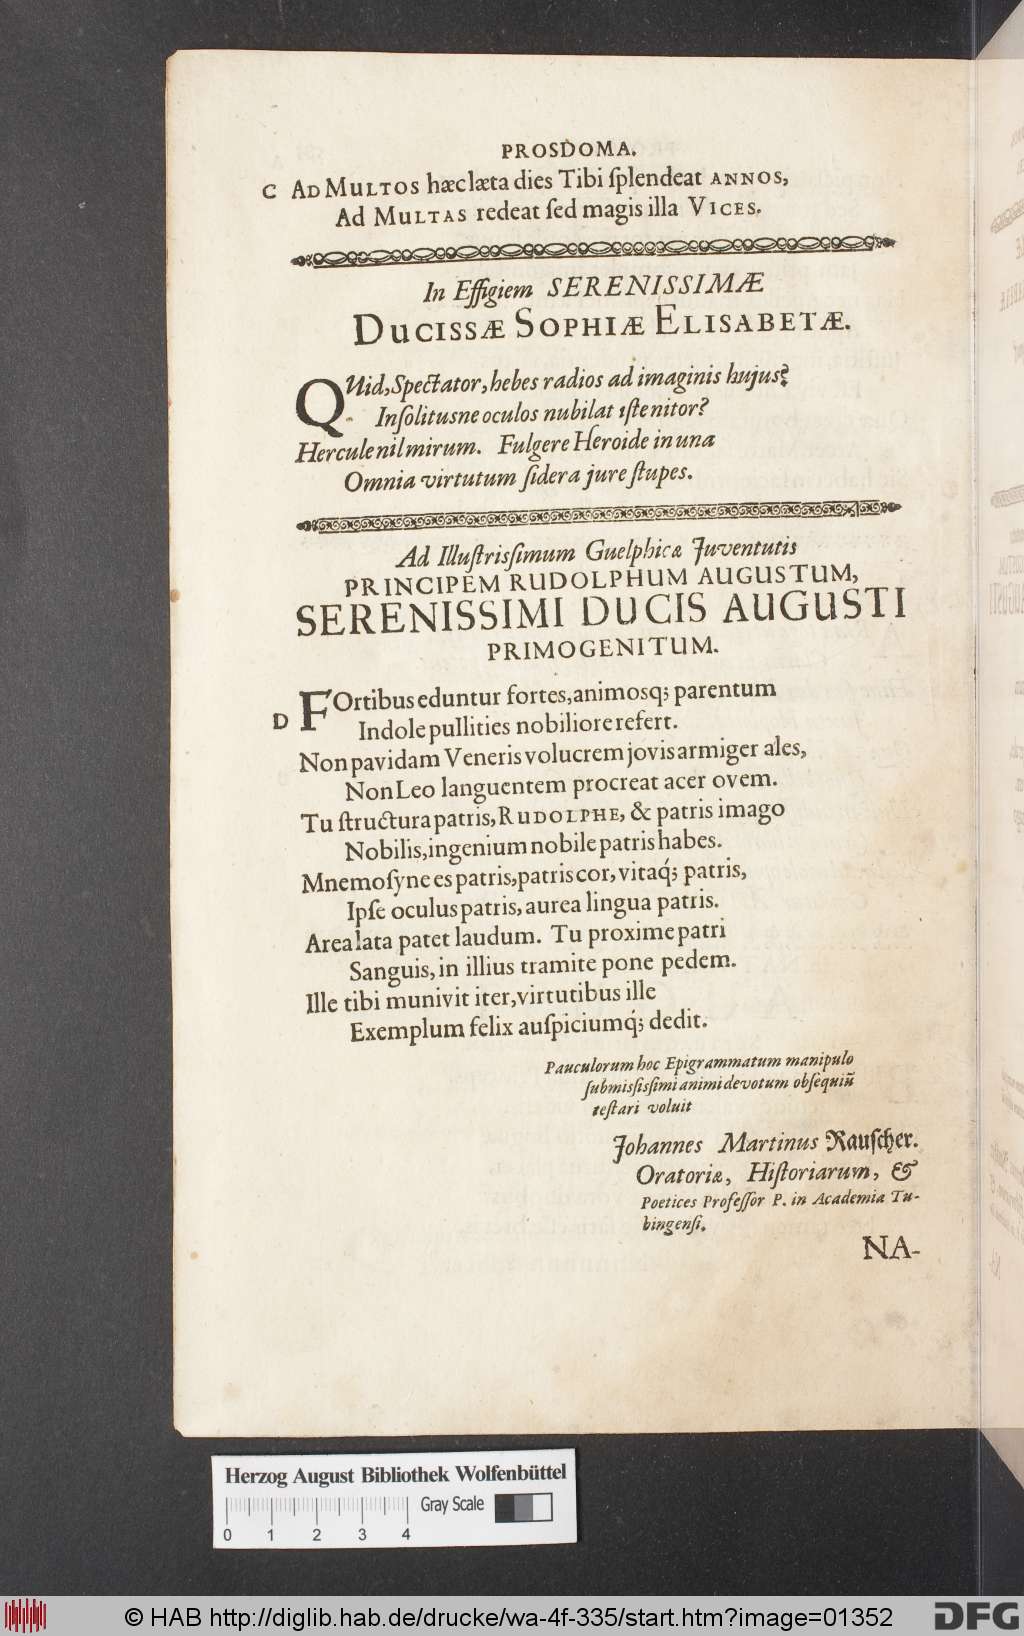 PROSDOMA.
C AD MULTOS hæc læta dies Tibi ſplendeat ANNOS,
Ad MULTAS redeat ſed magis illa VICES.
In Effigiem SERENISSIMÆ
DUCISSÆ SOPHIÆ ELISABETÆ.
QUid, Spectator, hebes radios ad imaginis hujus?
Inſolitusne oculos nubilat iſte nitor?
Hercule nil mirum. Fulgere Heroide in una
Omnia virtutum ſidera jure ſtupes.
Ad Illuſtrisſimum Guelphicæ Juventutis
PRINCIPEM RUDOLPHUM AUGUSTUM,
SERENISSIMI DUCIS AUGUSTI
PRIMOGENITUM.
D FOrtibus eduntur fortes, animosq; parentum
Indole pullities nobiliore refert.
Non pavidam Veneris volucrem jovis armiger ales,
Non Leo languentem procreat acer ovem.
Tu ſtructura patris, RUDOLPHE, & patris imago
Nobilis, ingenium nobile patris habes.
Mnemoſyne es patris, patris cor, vitaq́; patris,
Ipſe oculus patris, aurea lingua patris.
Area lata patet laudum. Tu proxime patri
Sanguis, in illius tramite pone pedem.
Ille tibi munivit iter, virtutibus ille
Exemplum felix auſpiciumq́; dedit.
Pauculorum hoc Epigrammatum manipulo
ſubmisſisſimi animi devotum obſequiū
teſtari voluit
Johannes Martinus Rauſcher.
Oratoriæ, Hiſtoriarum, &
Poetices Profeſſor P. in Academia Tu-
bingenſi.
NA-
Herzog August Bibliothek Wolfenbüttel
Gray Scale
0 1 2 3 4
© HAB http://diglib.hab.de/drucke/wa-4f-335/start.htm?image=01352
DFG